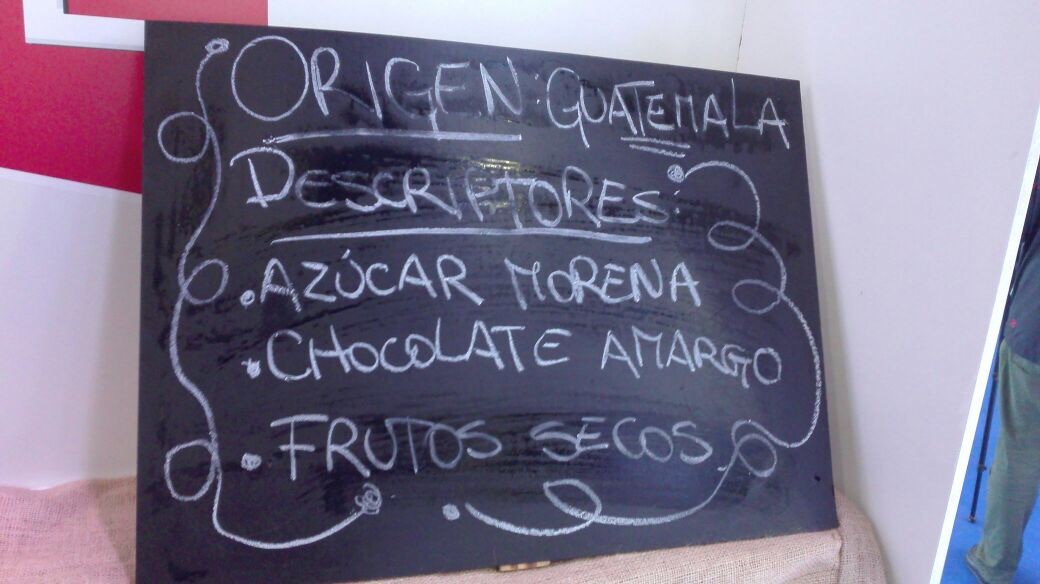 ORIGEN: GUATEMALA
DESCRIPTORES:
• AZÚCAR MORENA
• CHOCOLATE AMARGO
• FRUTOS SECOS